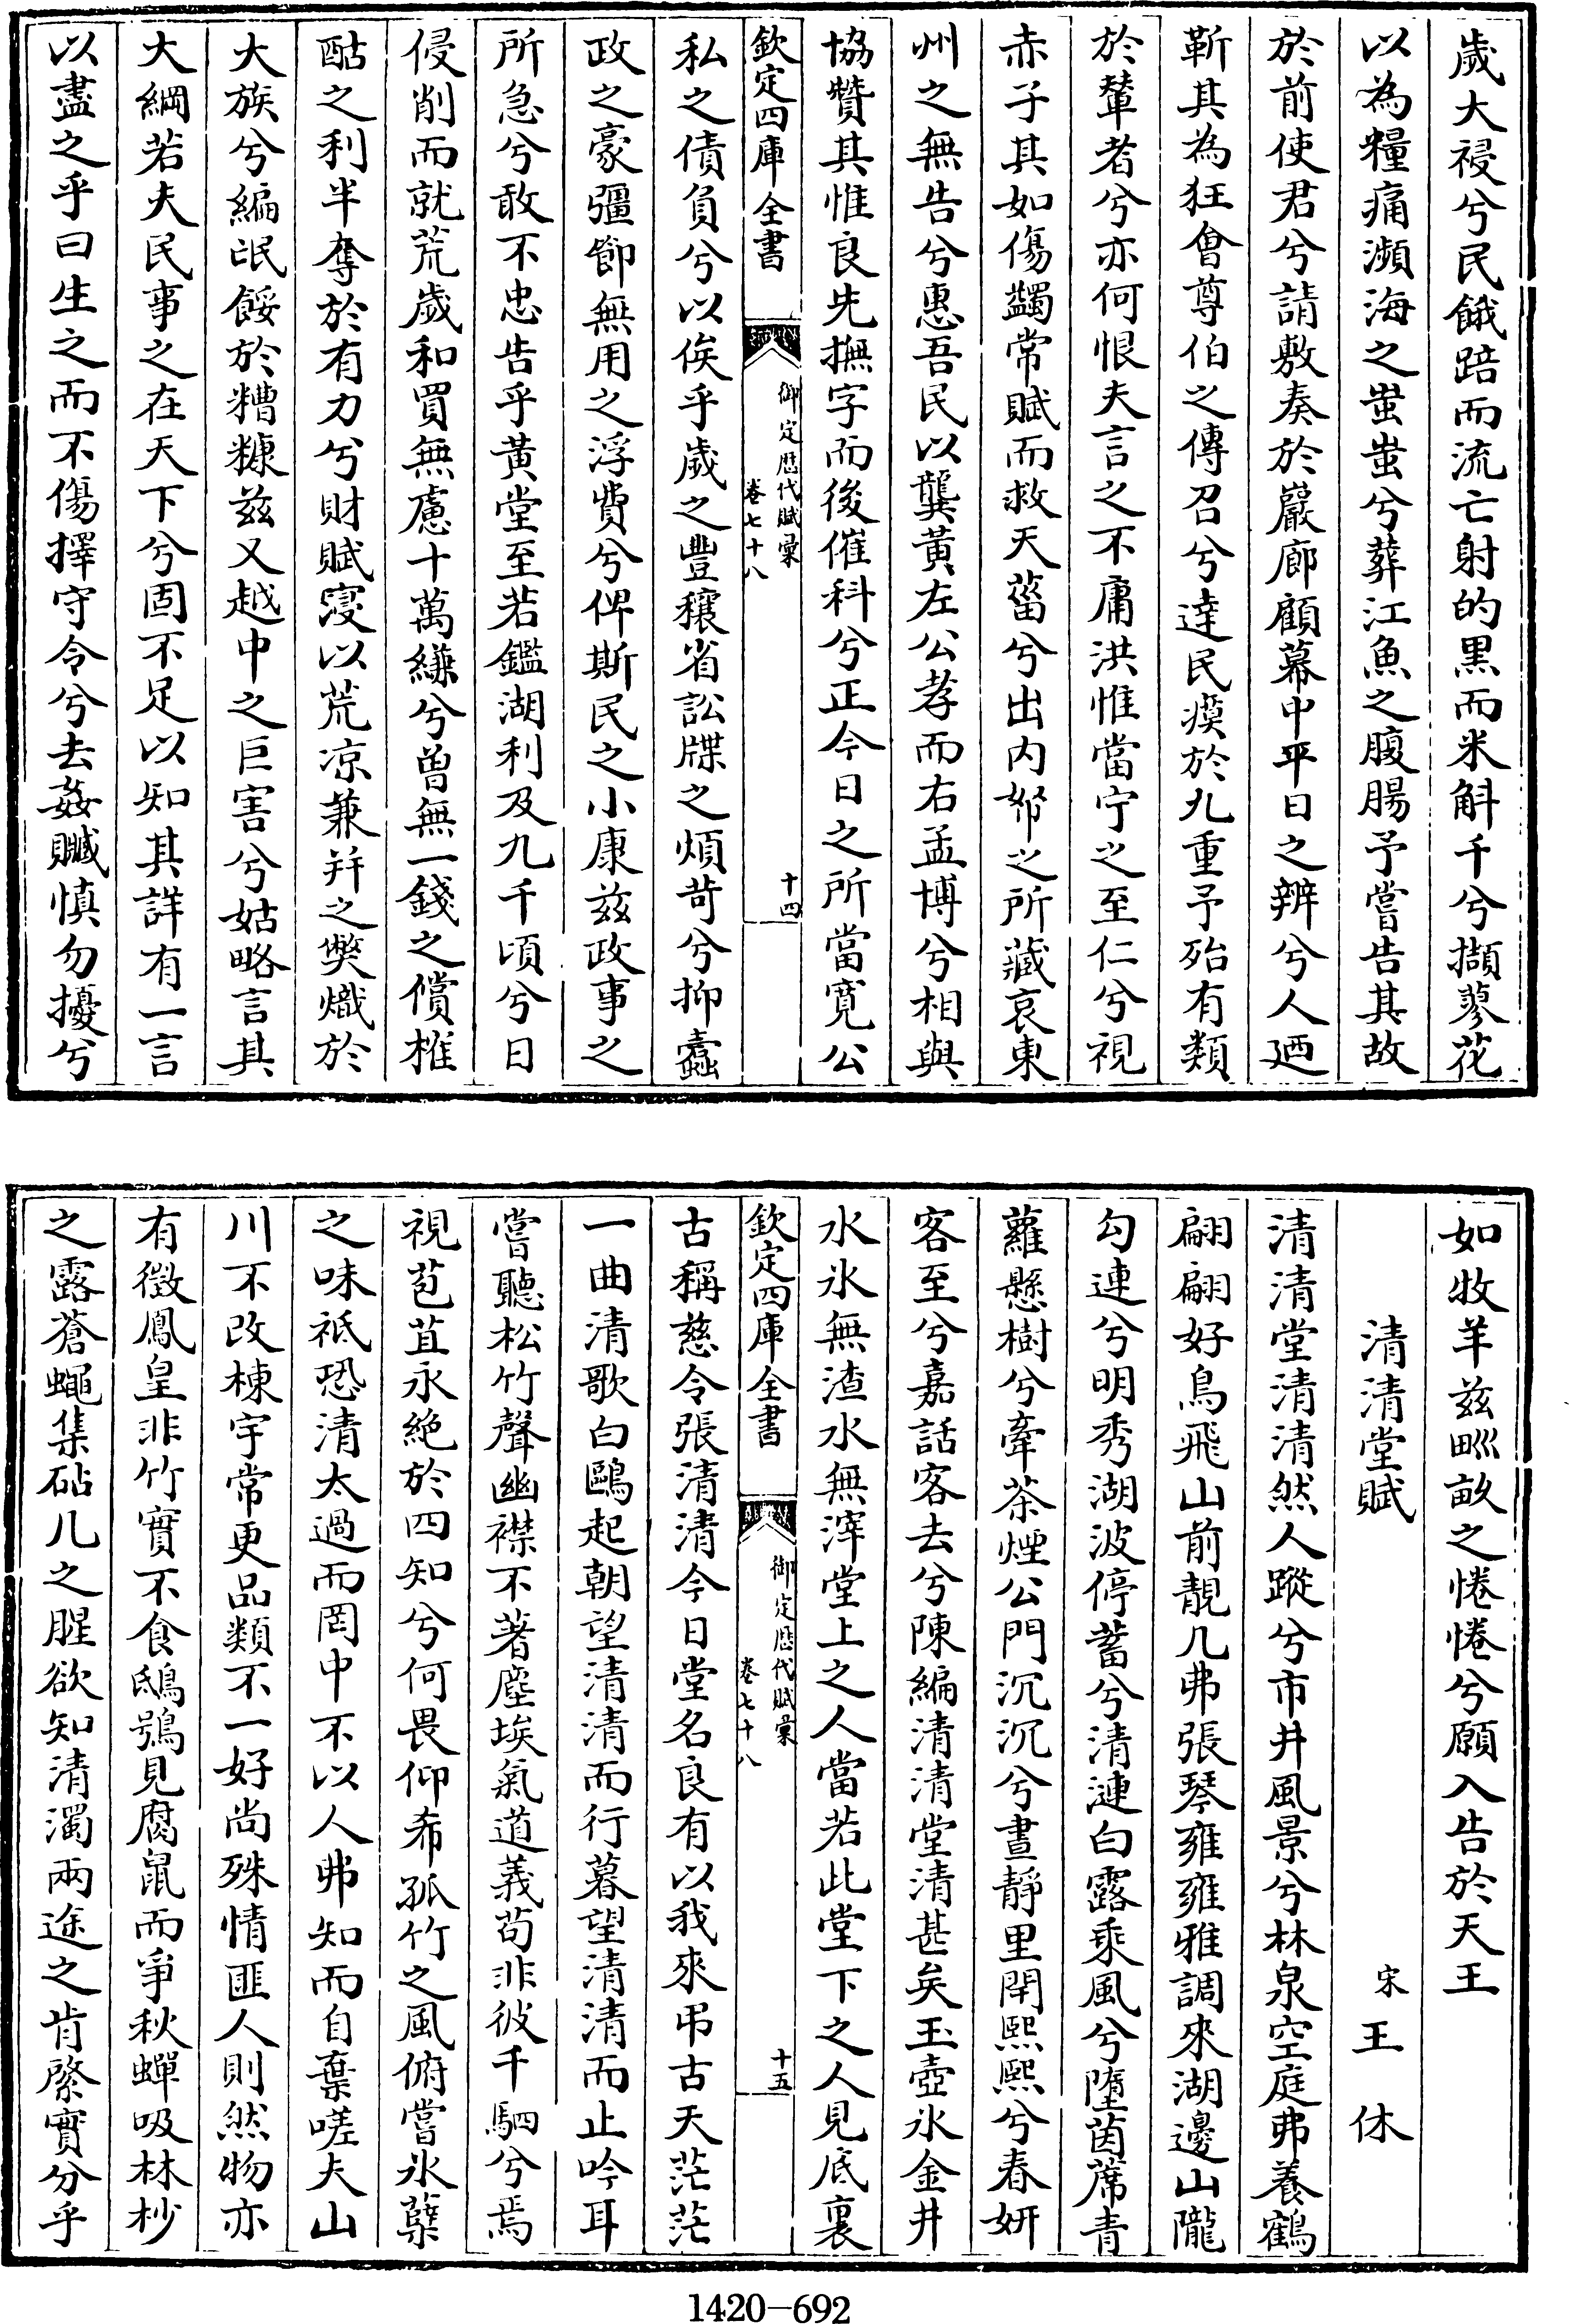 歲大祲兮民餓踣而流亡射的黑而米斛千兮擷蓼花
以為糧痛瀕海之蚩蚩兮葬江魚之腹腸予嘗告其故
於前使君兮請敷奏於巖廊顧幕中平日之辨兮人廼
靳其為狂會尊伯之傳召兮達民瘼於九重予殆有類
於輦者兮亦何恨夫言之不庸洪惟當宁之至仁兮視
赤子其如傷蠲常賦而救天菑兮出內帑之所藏哀東
州之無告兮惠吾民以龔黃左公孝而右孟博兮相與
協贊其惟良先撫字而後催科兮正今日之所當寬公
欽定四庫全書
御定歷代賦彙
卷七十八
十四
私之債負兮以俟乎歲之豐穰省訟牒之煩苛兮抑蠹
政之豪彊節無用之浮費兮俾斯民之小康茲政事之
所急兮敢不忠告乎黃堂至若鑑湖利及九千頃兮日
侵削而就荒歲和買無慮十萬縑兮曾無一錢之償榷
酤之利半奪於有力兮財賦寖以荒凉兼并之獘熾於
大族兮編氓餒於糟糠茲又越中之巨害兮姑略言其
大綱若夫民事之在天下兮固不足以知其詳有一言
以盡之乎曰生之而不傷擇守令兮去姦贓慎勿擾兮
如牧羊茲甽畝之惓惓兮願入告於天王
清清堂賦
宋王休
清清堂清清然人蹤兮市井風景兮林泉空庭弗養鶴
翩翩好鳥飛山前靚几弗張琴雍雍雅調來湖邊山隴
勾連兮明秀湖波停蓄兮清漣白露乘風兮墮茵蓆青
蘿懸樹兮牽茶煙公門沉沉兮晝靜里閈熙熙兮春妍
客至兮嘉話客去兮陳編清清堂清甚矣玉壺氷金井
水氷無渣水無滓堂上之人當若此堂下之人見底裏
欽定四庫全書
御定歷代賦彙
卷七十八
十五
古稱慈令張清清今日堂名良有以我來弔古天茫茫
一曲清歌白鷗起朝望清清而行暮望清清而止吟耳
嘗聽松竹聲幽襟不著塵埃氣道義苟非彼千駟兮焉
視苞苴永絕於四知兮何畏仰希孤竹之風俯嘗氷蘗
之味祗恐清太過而罔中不以人弗知而自棄嗟夫山
川不改棟宇常更品類不一好尚殊情匪人則然物亦
有徵鳳皇非竹實不食鴟鴞見腐鼠而爭秋蟬吸林杪
之露蒼蠅集砧几之腥欲知清濁兩途之肯綮實分乎
1420—692